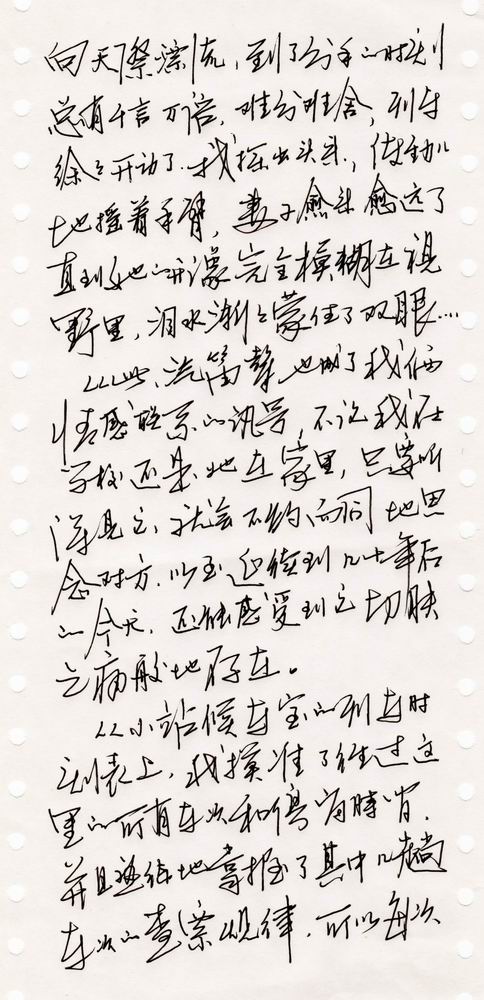 向天际漂流，到了分手的时刻
总有千言万语，难分难舍，列车
徐徐开动了，我探出头来，使劲儿
地摇着手臂，妻子愈来愈远了
直到她的形象完全模糊在视
野里，泪水渐渐蒙住了双眼…
从此，汽笛声也成了我俩
情感联系的讯号，不论我在
学校还是她在家里，只要听
得见它，就会不约而同地思
念对方，以至延续到几十年后
的今天，还能感受到它切肤
之痛般地存在。
从小站候车室的列车时
刻表上，我摸准了经过这
里的所有车次和停留时间，
并且逐综地掌握了其中几趟
车次的查票规律，可以每次